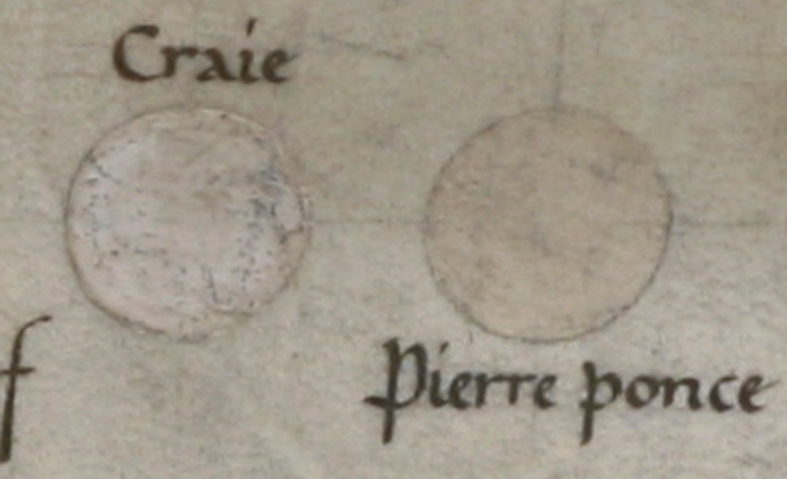 Craie
f
Pierre ponce